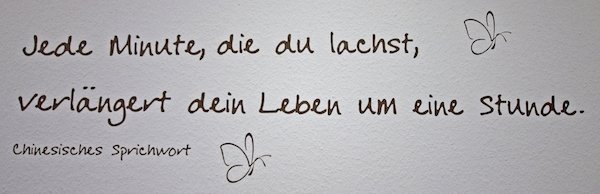 Jede Minute, die du lachst,
verlängert dein Leben um eine Stunde.
Chinesisches Sprichwort